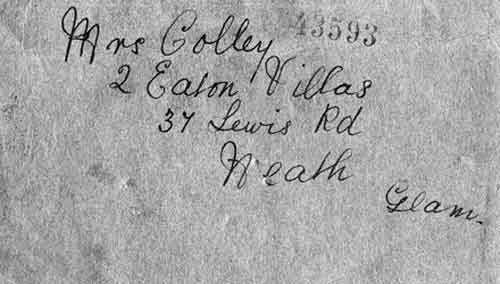 Mrs Colley 43593
2 Eaton Villas
37 Lewis Rd
Neath
Glam.